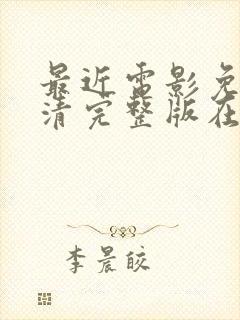 最近电影免
清完整版在
李晨皎